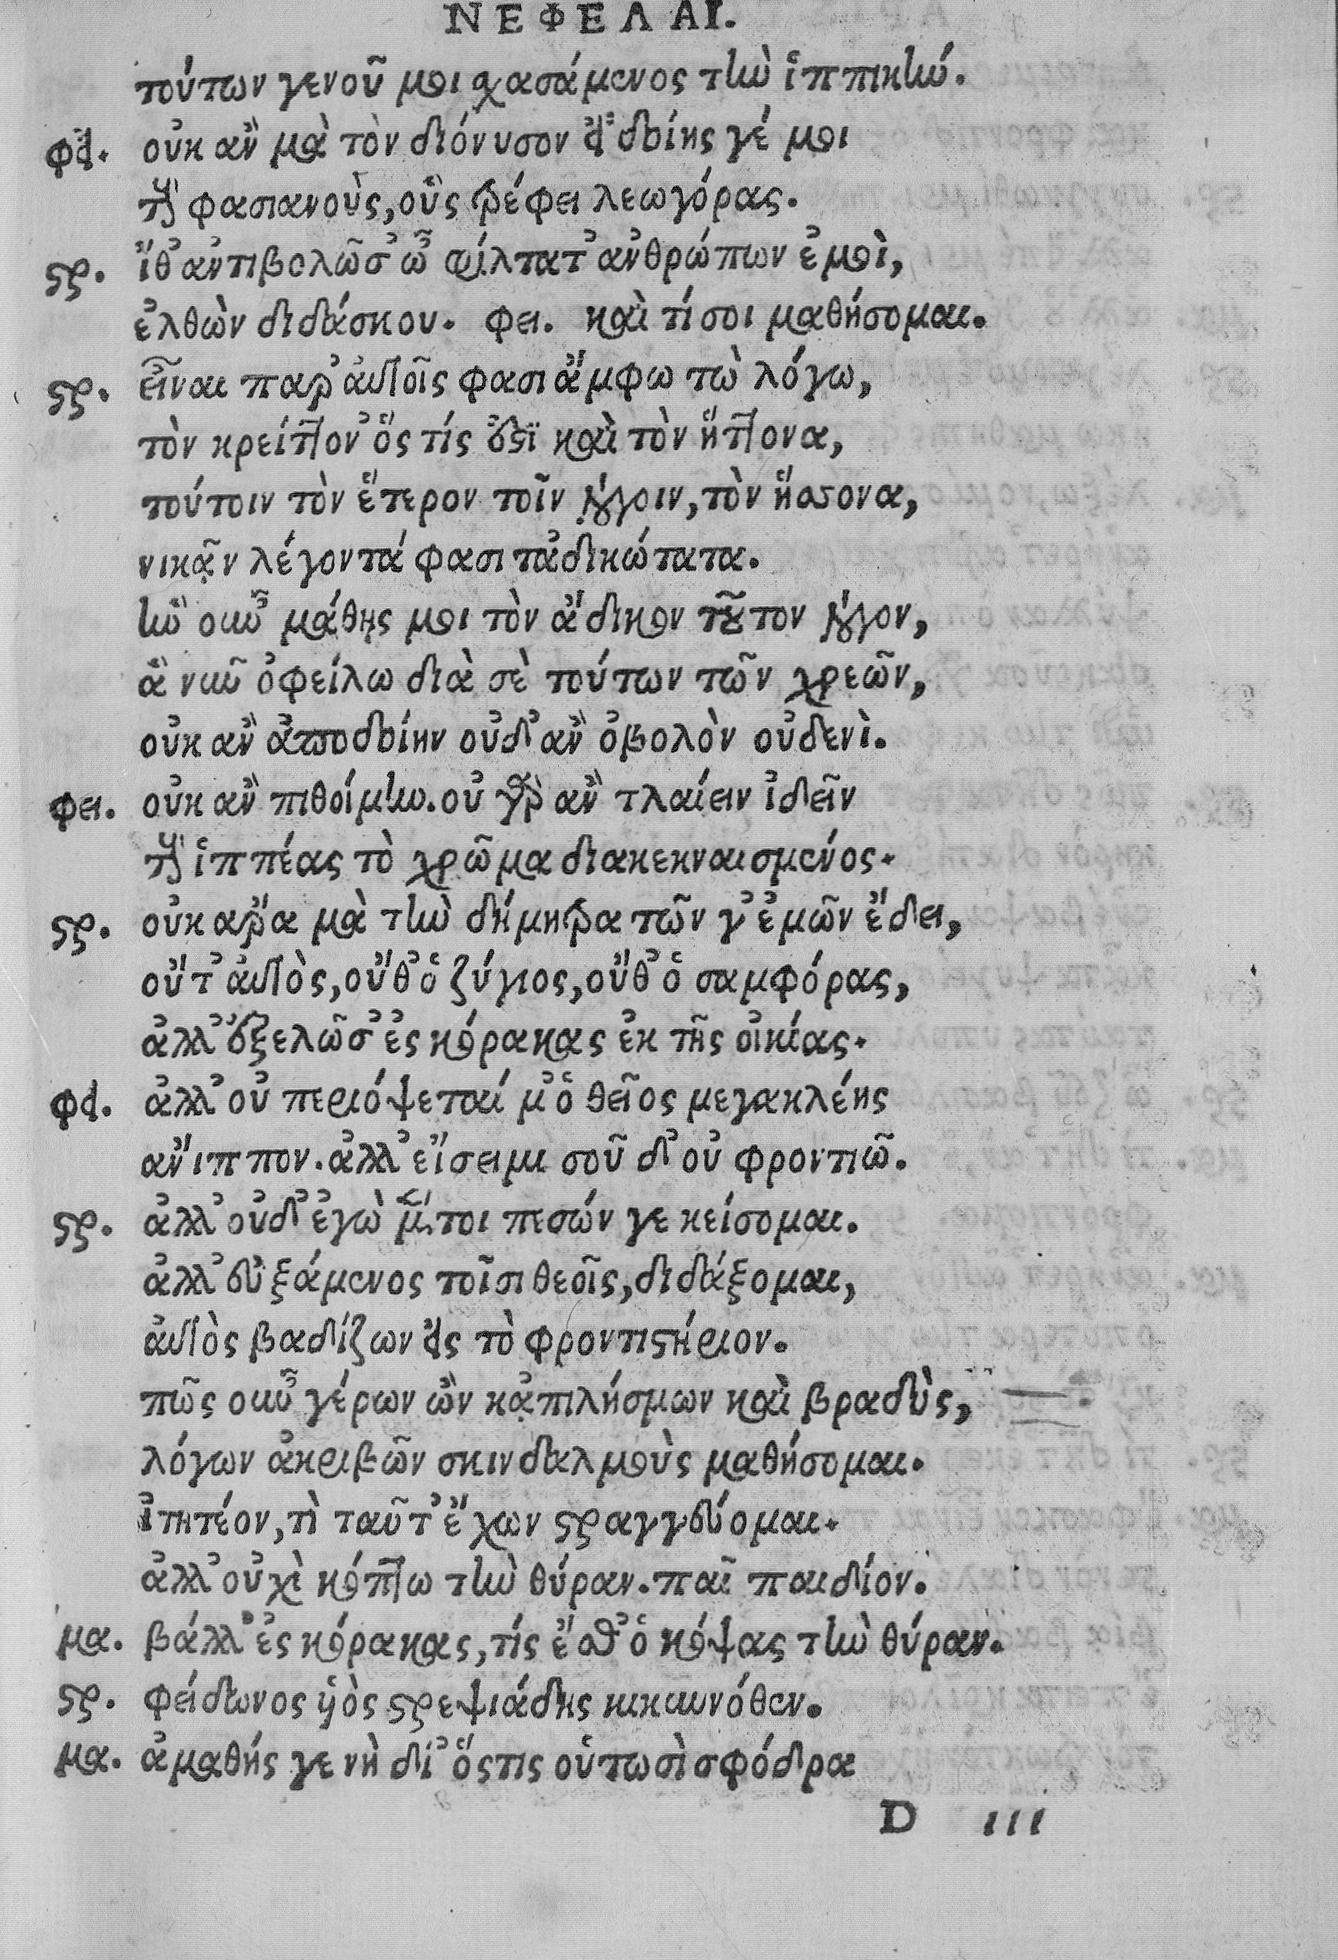 ΝΕΦΕΛΑΙ.
τούτων γενοῦ μοι χασάμενος τὴν ἱππικήν.
φει. οὐκ ἂν μὰ τὸν διόνυσον εἰ δοίης γέ μοι
τοὺς φασιανοὺς, οὓς τρέφει λεωγόρας.
στρ. ἴθ' ἀντιβολῶ σ' ὦ φίλτατ' ἀνθρώπων ἐμοὶ,
ἐλθὼν διδάσκου. φει. καὶ τί σοι μαθήσομαι.
στρ. εἶναι παρ' αὐτοῖς φασι ἄμφω τὼ λόγω,
τὸν κρείττον' ὅς τίς ἐστὶ καὶ τὸν ἥττονα,
τούτοιν τὸν ἕτερον τοῖν λόγοιν, τὸν ἥσσονα,
νικᾷν λέγοντά φασι τἀδικώτατα.
ἢν οὖν μάθῃς μοι τὸν ἄδικον τοῦτον λόγον,
ἃ νῦν ὀφείλω διὰ σὲ τούτων τῶν χρεῶν,
οὐκ ἂν ἀποδοίην οὐδ' ἂν ὀβολὸν οὐδενὶ.
φει. οὐκ ἂν πιθοίμην. οὐ γὰρ ἂν τλαίειν ἰδεῖν
τοὺς ἱππέας τὸ χρῶμα διακεκναισμένος.
στρ. οὐκ ἄρα μὰ τὴν δήμητρα τῶν γ' ἐμῶν ἔδει,
οὔτ' αὐτὸς, οὔθ' ὁ ζύγιος, οὔθ' ὁ σαμφόρας,
ἀλλ' ἐξελῶ σ' ἐς κόρακας ἐκ τῆς οἰκίας.
φει. ἀλλ' οὐ περιόψεταί μ' ὁ θεῖος μεγακλέης
ἄνιππον. ἀλλ' εἴσειμι σοῦ δ' οὐ φροντιῶ.
στρ. ἀλλ' οὐδ' ἐγὼ μέντοι πεσών γε κείσομαι.
ἀλλ' εὐξάμενος τοῖσι θεοῖς, διδάξομαι,
αὐτὸς βαδίζων εἰς τὸ φροντιστήριον.
πῶς οὖν γέρων ὢν κἀπιλήσμων καὶ βραδὺς,
λόγων ἀκριβῶν σκινδαλμοὺς μαθήσομαι.
ἰτητέον, τὶ ταῦτ' ἔχων στραγγεύομαι.
ἀλλ' οὐχὶ κόπτω τὴν θύραν. παῖ παιδίον.
μα. βάλλ' ἐς κόρακας, τίς ἔσθ' ὁ κόψας τὴν θύραν.
στρ. φείδωνος ὑὸς στρεψιάδης κικυννόθεν.
μα. ἀμαθής γε νὴ δί' ὅστις οὑτωσὶ σφόδρα
D iii